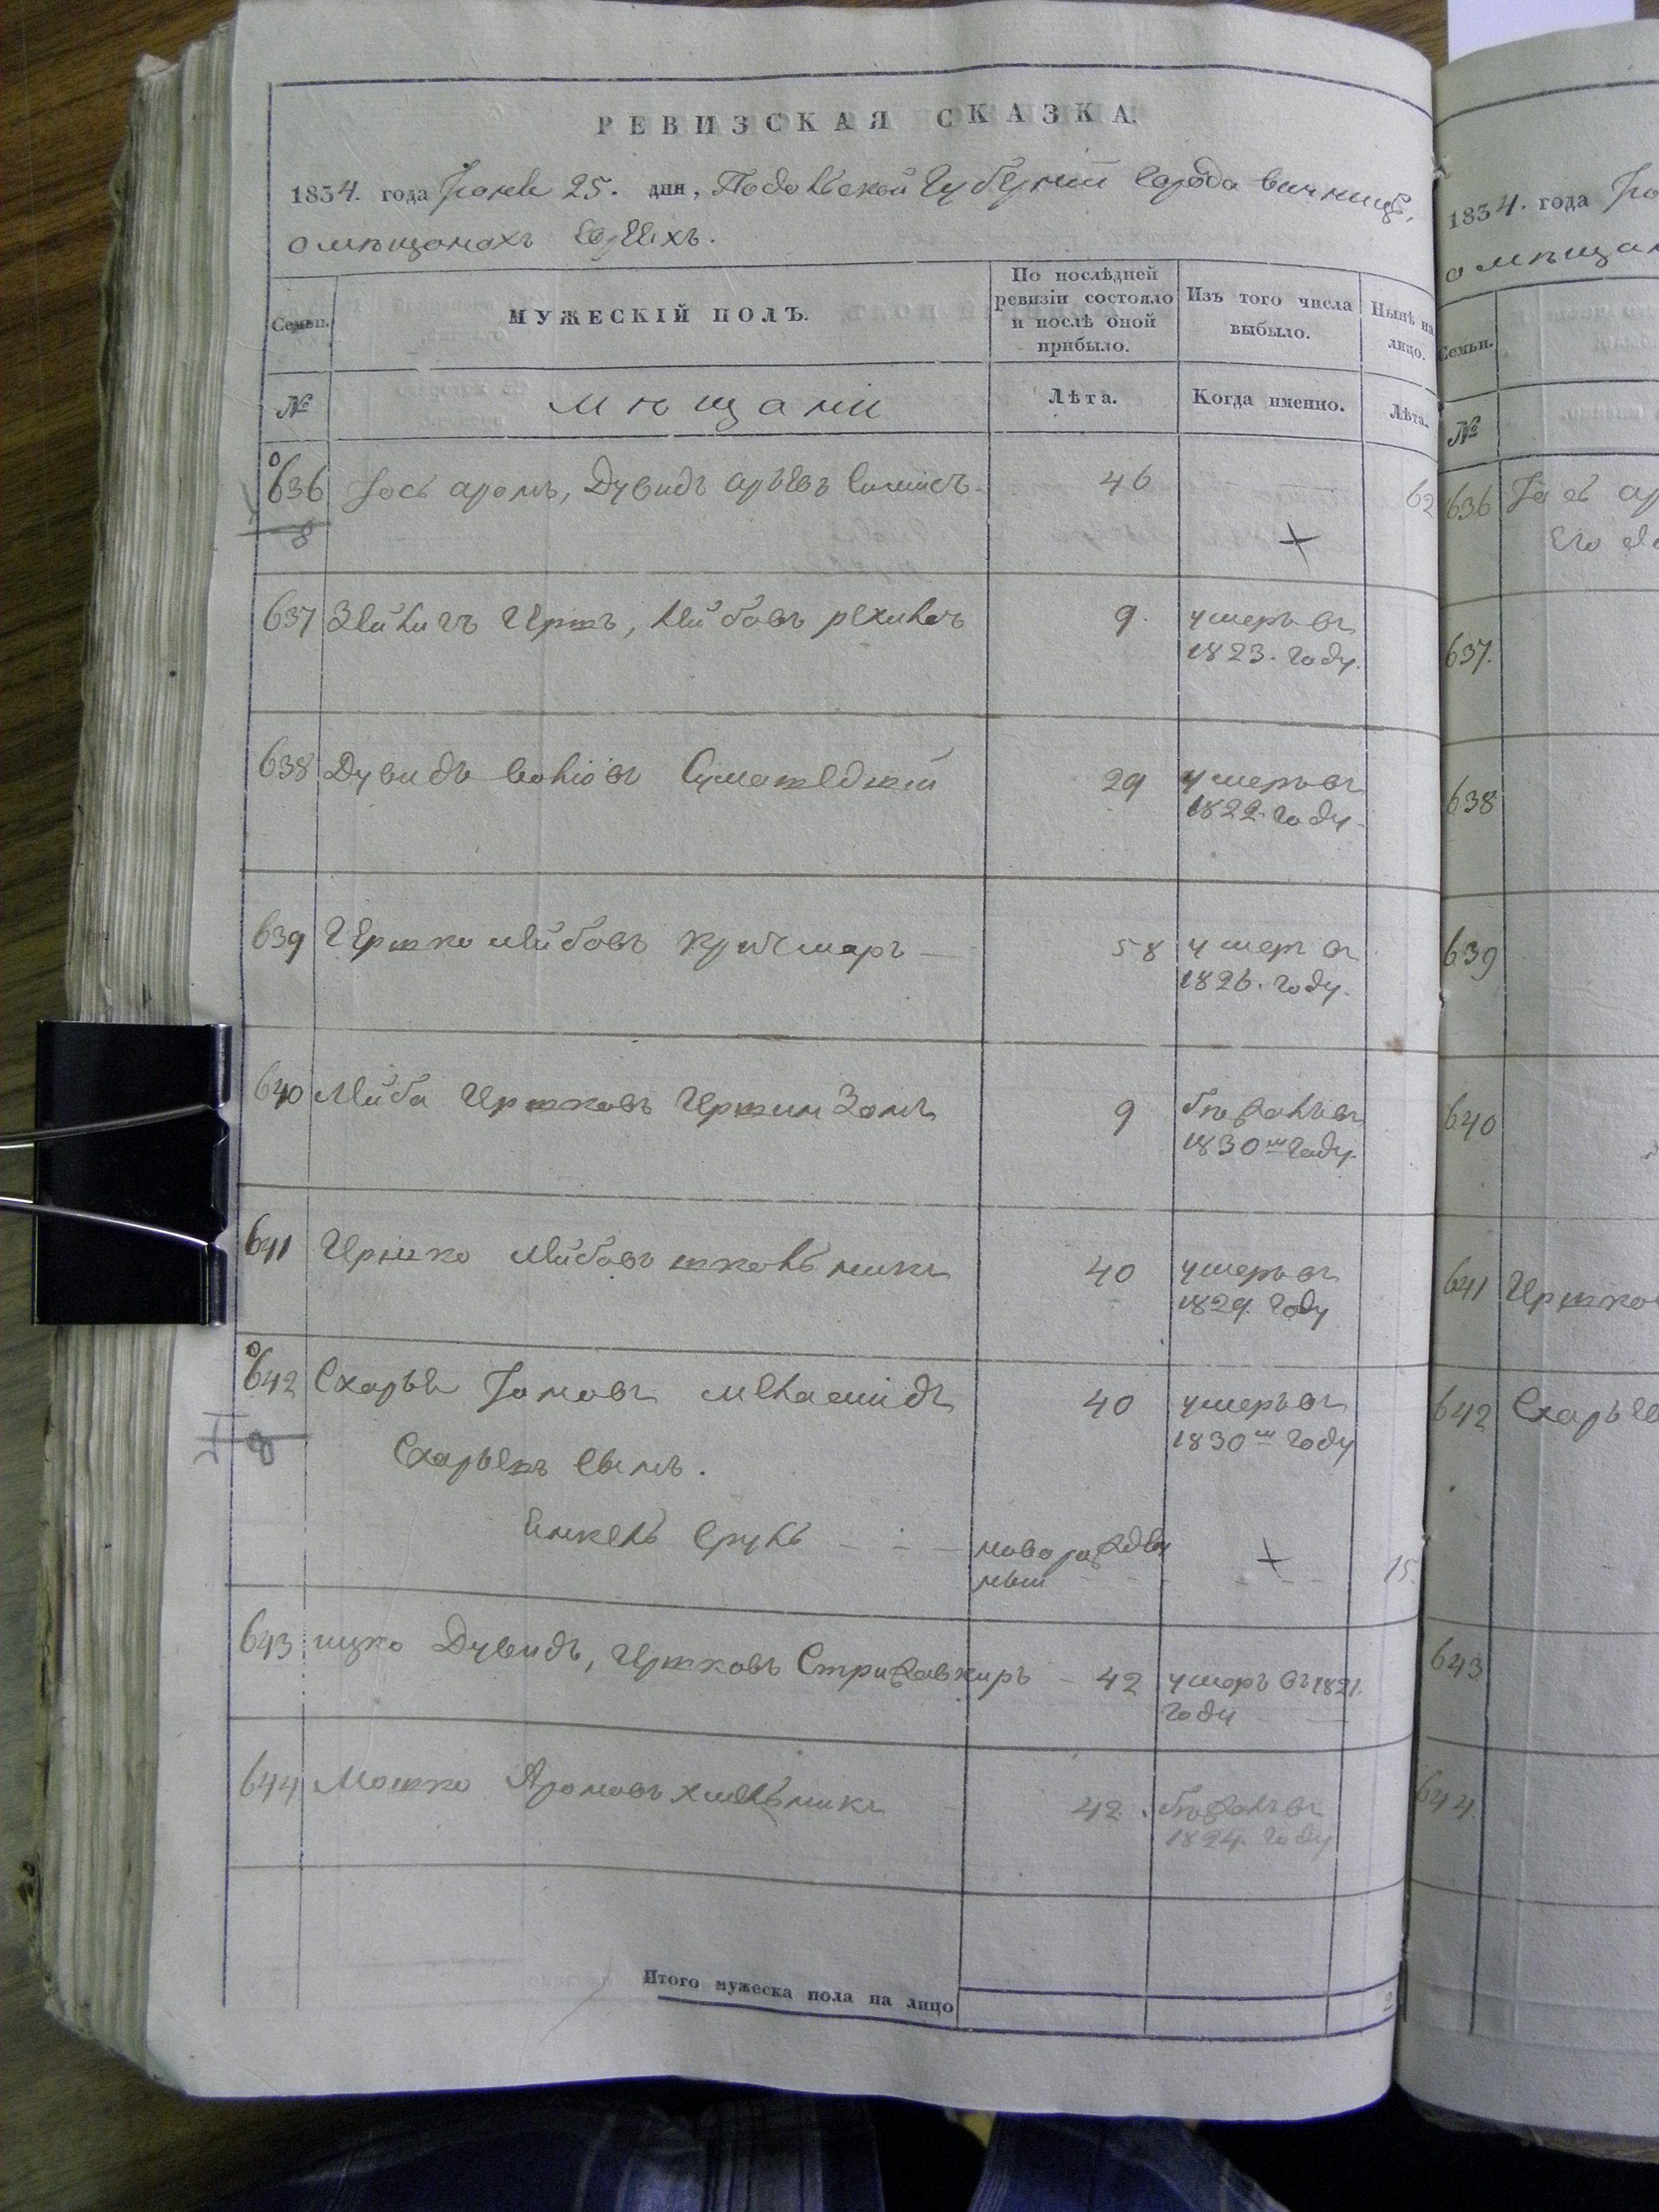 РЕВИЗСКАЯ СКАЗКА.
1834. года Iюня 25. дня, Подольской Губернiи города Винницы,
о мѣщанахъ евреяхъ.
Семьи.
МУЖЕСКIЙ ПОЛЪ.
По послѣдней
ревизiи состояло
и послѣ оной
прибыло.
Изъ того числа
выбыло.
Нынѣ на
лицо.
№
мѣщане
Лѣта.
Когда именно.
Лѣта.
636 Iось аронъ, Дувидъ арьевъ 46 62
8
637 Зейлигъ Гершъ, лейбовъ 9. умеръ въ
1823. году.
638 Дувидъ 29 умеръ въ
1822. году.
639 Гершко лейбовъ кричмаръ 58 умеръ въ
1826. году.
640 Лейба Гершковъ Гершинзонъ 9 бѣжалъ въ
1830м году.
641 Гершко лейбовъ школьникъ 40 умеръ въ
1829. году
642 Схарья меламидъ 40 умеръ въ
1830м году
8
Схарьевъ сынъ.
Янкель Сруль новорожден
ный 15.
643 ицко Дувидъ, Гершковъ Стрижавкиръ 42 умеръ въ 1821.
году
644 Мошко Ароновъ хмельникъ 42. бѣжалъ въ
1824. году
Итого мужеска пола на лицо 2
1834. года
о мѣщан
Семьи.
№
636 Iось ар
Его
637.
638
639
640
641 Гершко
642 Схарье
643
644.